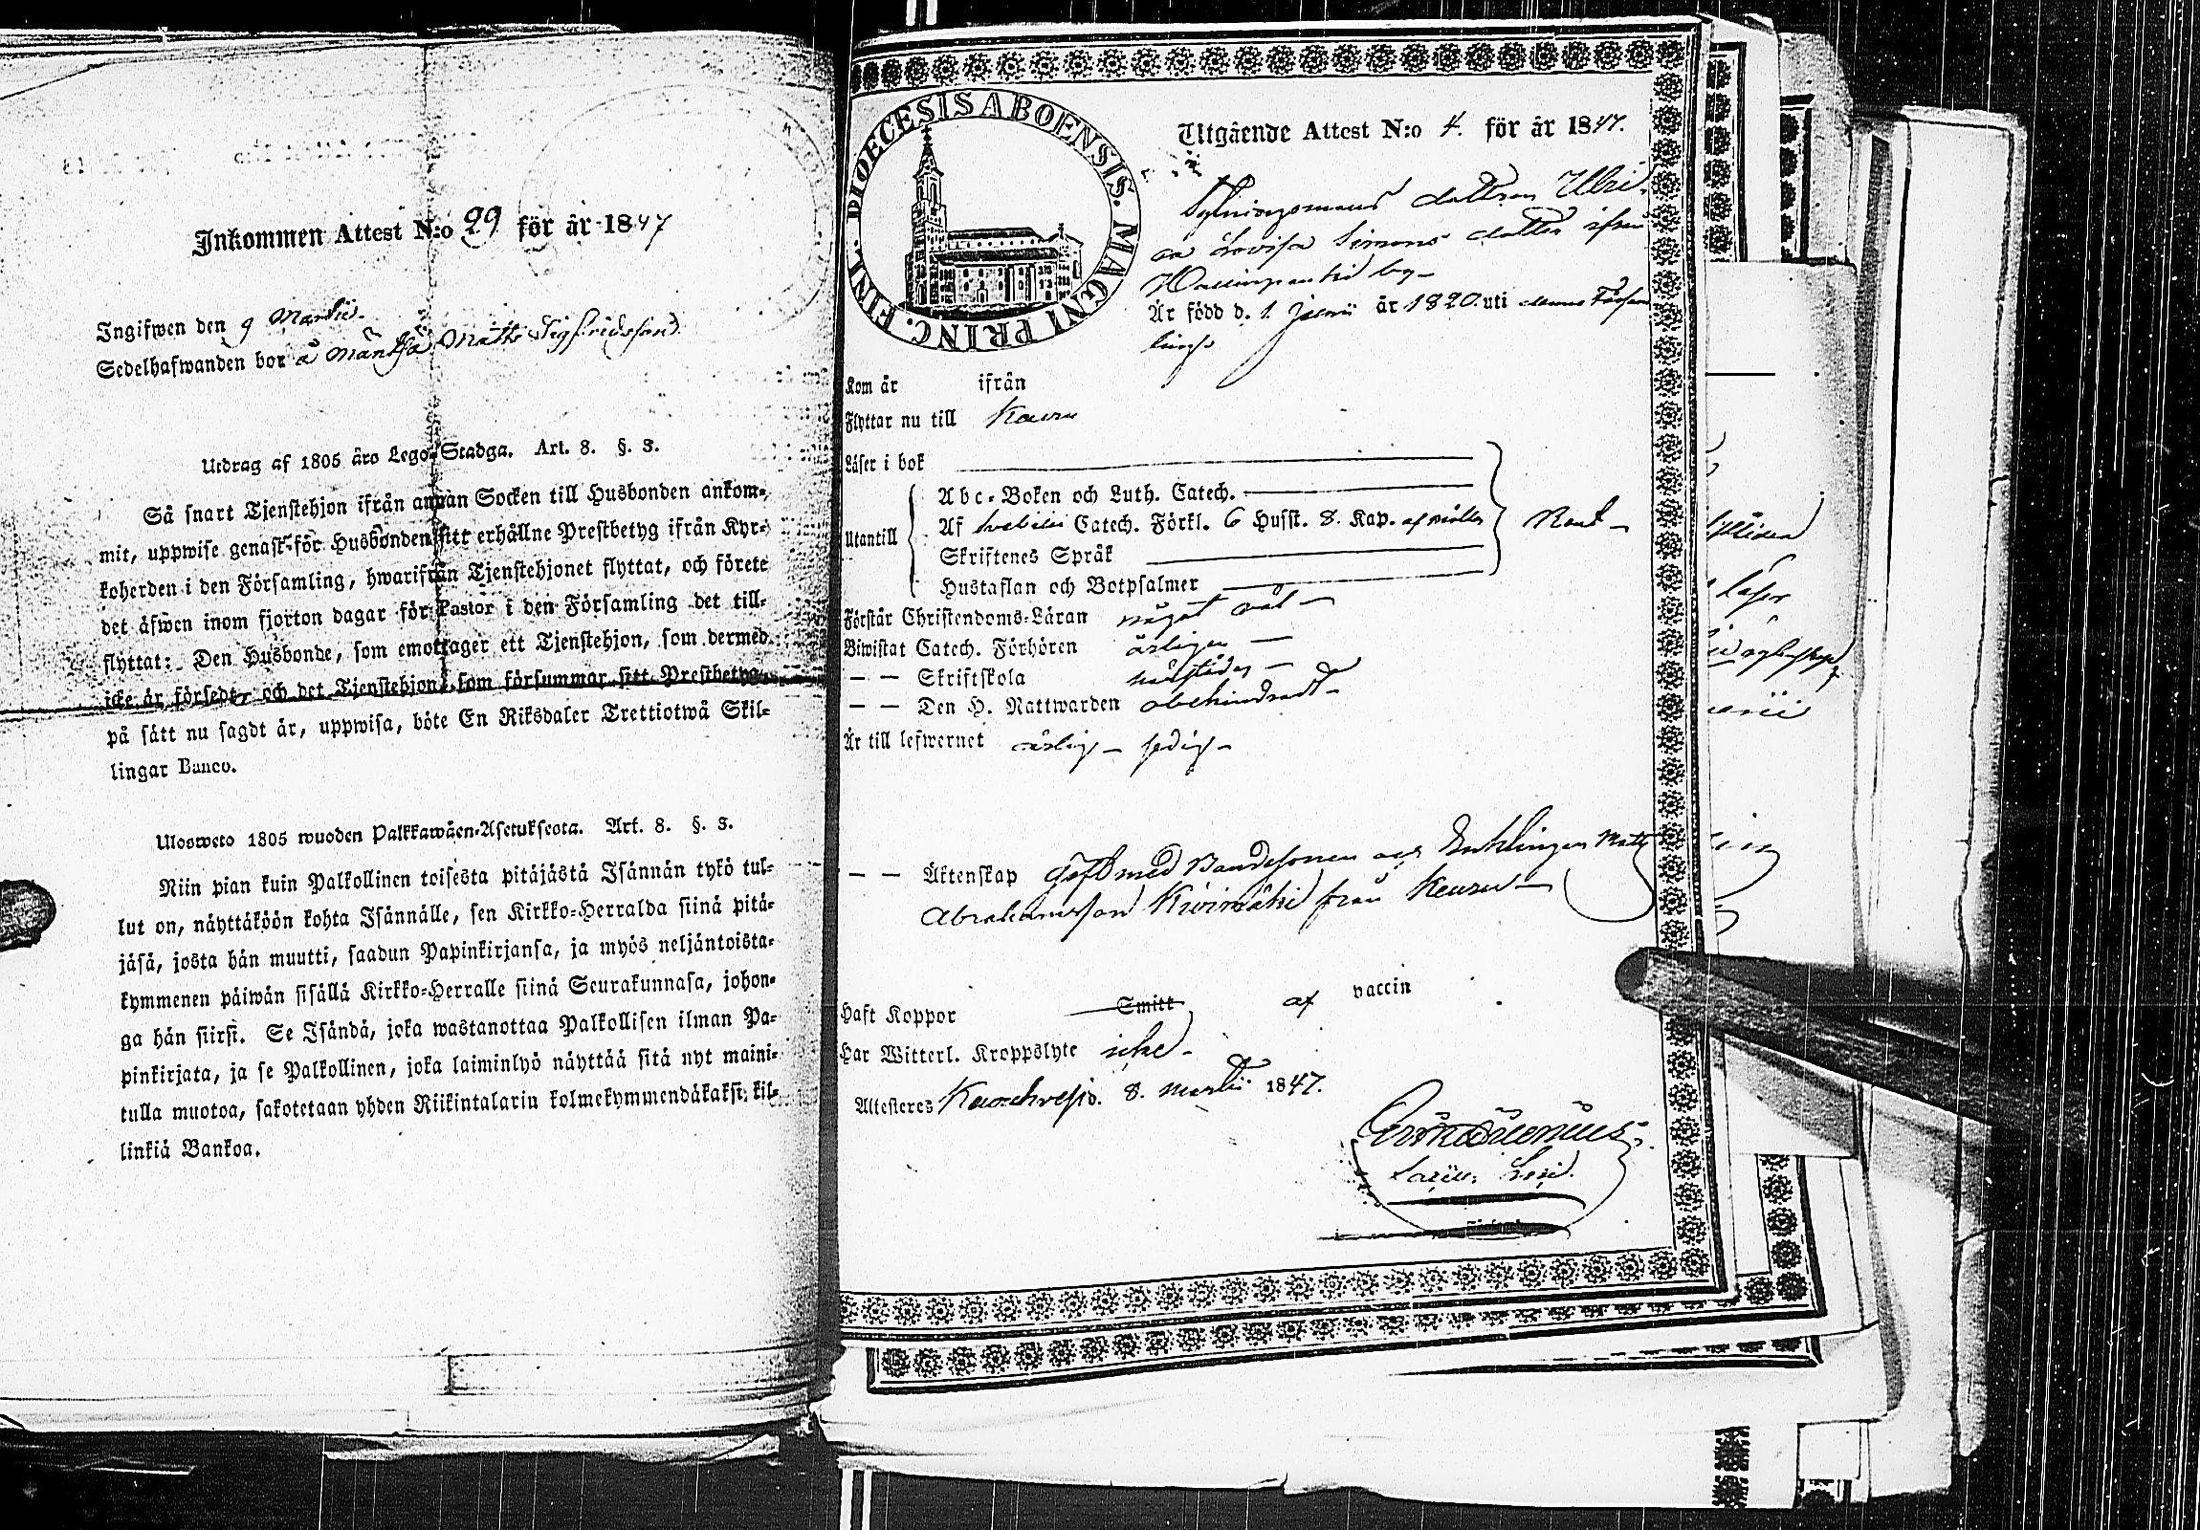 Inkommen Attest N:o 29 för år 1847
Ingifwen den 9 Martii.
Sedelhafwanden bor å Mäntsä Matts Sigfridsson
Utdrag af 1805 års Lego-Stadga. Art. 8. §. 3.
Så snart Tjenstehjon ifrån annan Socken till Husbonden ankom-
mit, uppwise genast för Husbonden sitt erhållne Prestbetyg ifrån Kyr-
koherden i den Församling, hwarifrån Tjenstehjonet flyttat, och förete
det äfwen inom fjorton dagar för Pastor i den Församling det till-
flyttat: Den Husbonde, som emottager ett Tjenstehjon, som dermed
icke är försedt, och det Tjenstehjon, som försummar sitt Prestbetyg
på sätt nu sagdt är, uppwisa, böte En Riksdaler Trettiotwå Skil-
lingar Banco.
Ulosweto 1805 wuoden Palkkawäen-Asetuksesta. Art. 8. §. 3.
Niin pian kuin Palkollinen toisesta pitäjästä Isännän tykö tul-
lut on, näyttäköön kohta Isännälle, sen Kirkko-Herralda siinä pitä-
jäsä, josta hän muutti, saadun Papinkirjansa, ja myös neljäntoista-
kymmenen päiwän sisällä Kirkko-Herralle siinä Seurakunnasa, johon-
ga hän siirsi. Se Isändä, joka wastanottaa Palkollisen ilman Pa-
pinkirjata, ja se Palkollinen, joka laiminlyö näyttää sitä nyt maini-
tulla muotoa, sakotetaan yhden Riikintalarin kolmekymmendäkaksi kil-
linkiä Bankoa.
DIOECESIS ABOENSIS. MAGNI PRINC. FINL.
Utgående Attest N:o 4. för år 1847.
Sytningsmans dottren Ulri-
ca Lovisa Simons dotter ifrån
by
Är född d. 1 Junii år 1820 uti denna Försam
lings
Kom år ifrån
Flyttar nu till Keuru
Läser i bok
Utantill
Abc-Boken och Luth. Catech.
Af Svebilii Catech. Förkl. 6 Husst. 8. Kap. af Möller
Skriftenes Språk
Hustaflan och Botpsalmer
Förstår Christendoms-Läran något väl
Biwistat Catech. Förhören årligen
— — Skriftskola
— — Den H. Nattwarden obehindradt
Är till lefwernet ärlig sedig
— — Äktenskap Gift med Bondesonen och Enklingen Matts
Abrahamsson Kivimäki från Keuru
Haft Koppor Smitt af vaccin
Har Witterl. Kroppslyte icke
Attesteres 8. Martii 1847.